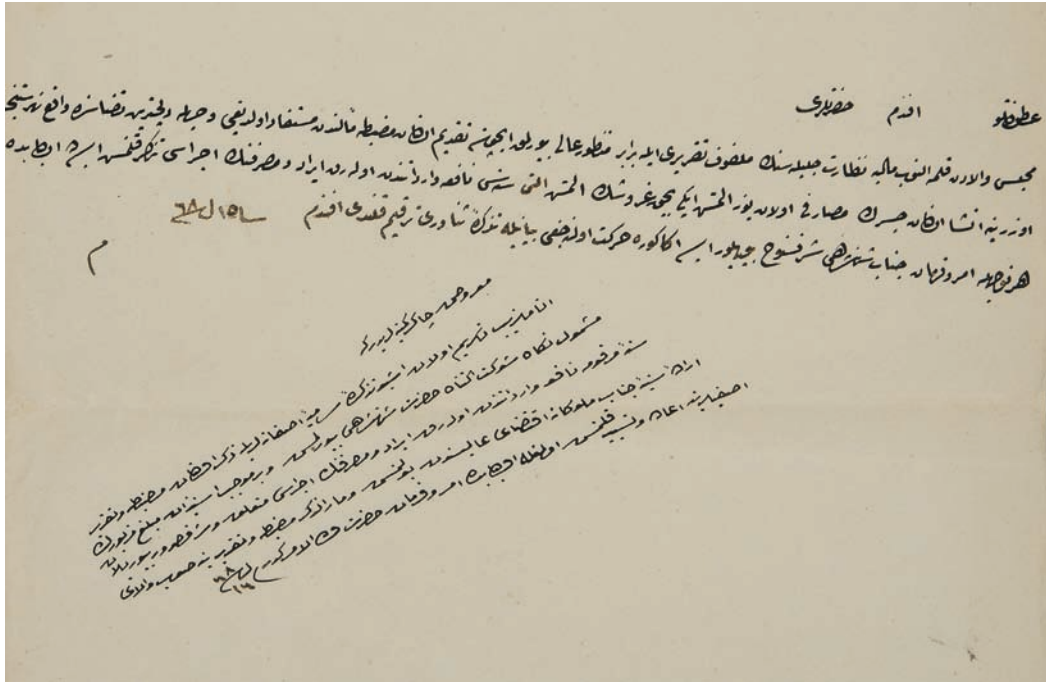 عطوفتلو افندم حضرتلری
مجلس والادن قلمه النوب مالیه نظارت جلیله سنك ملفوف تقریری ایله برابر منظور عالی بیورلمق ایچون تقدیم قلنان مضبطه مآلندن مستفاد اولدیغی وجهله قضاسنده واقع نهری
اوزرینه انشا اولنان جسرك مصارفی اولان یوز التمش ایکی بیچق غروشك التمش التی سنه سی نافعه وارداتندن اوله رق ایراد و مصرفنك اجراسی تذکر قلنمش ایسه ده اولبابده
هر نوجهله امر و فرمان جناب شهنشاهی شرفسنوح بیوریلور ایسه اکا کوره حرکت اولنه جغی بیانیله تذکرۀ ثناوری ترقیم قلندی افندم
م
معروض چاکر کمینه لریدر که
انامل زیب تکریم اولان اشبو تذکرۀ سامیۀ اصفانه لریله ذکر اولنان مضبطه و تقریر
مشمول نکاه شوکت اکتناه حضرت شهنشاهی بیورلمش و بر موجب استیذان مبلغ مزبورك
سنۀ مرقومه نافعه وارداتندن اوله رق ایراد و مصرفنك اجراسی متعلق و شرفصدور بیوریلان
ارادۀ سنیۀ جناب ملوکانه اقتضای عالیسندن بولنمش و مارالذکر مضبطه و تقریر ینه صوب والای
اصفیلرینه اعاده و تسییر قلنمش اولمغله اولبابده امر و فرمان حضرت ولی الامرکدر